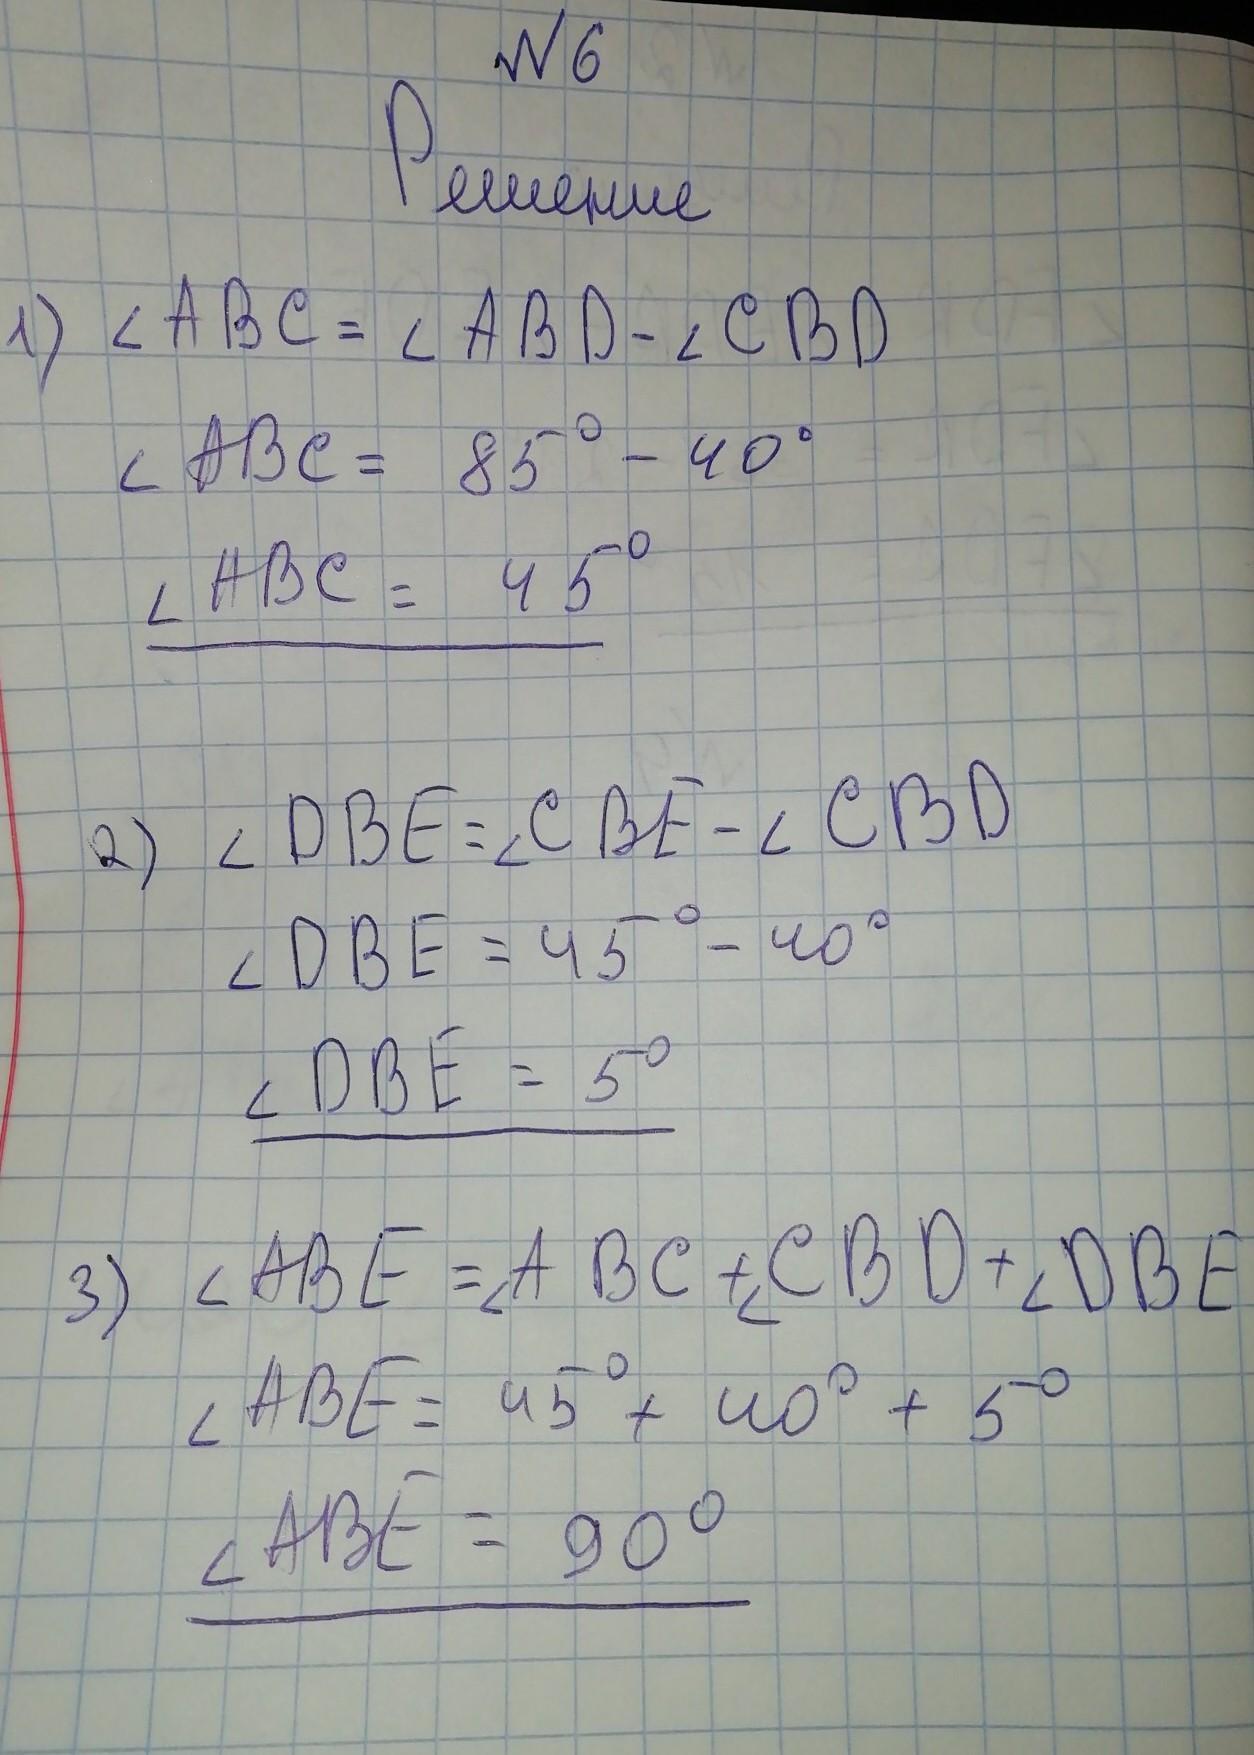 N 6
Решение
1) ∠ABC = ∠ABD - ∠CBD
∠ABC = 85° - 40°
∠ABC = 45°
2) ∠DBE = ∠CBE - ∠CBD
∠DBE = 45° - 40°
∠DBE = 5°
3) ∠ABE = ∠ABC + ∠CBD + ∠DBE
∠ABE = 45° + 40° + 5°
∠ABE = 90°